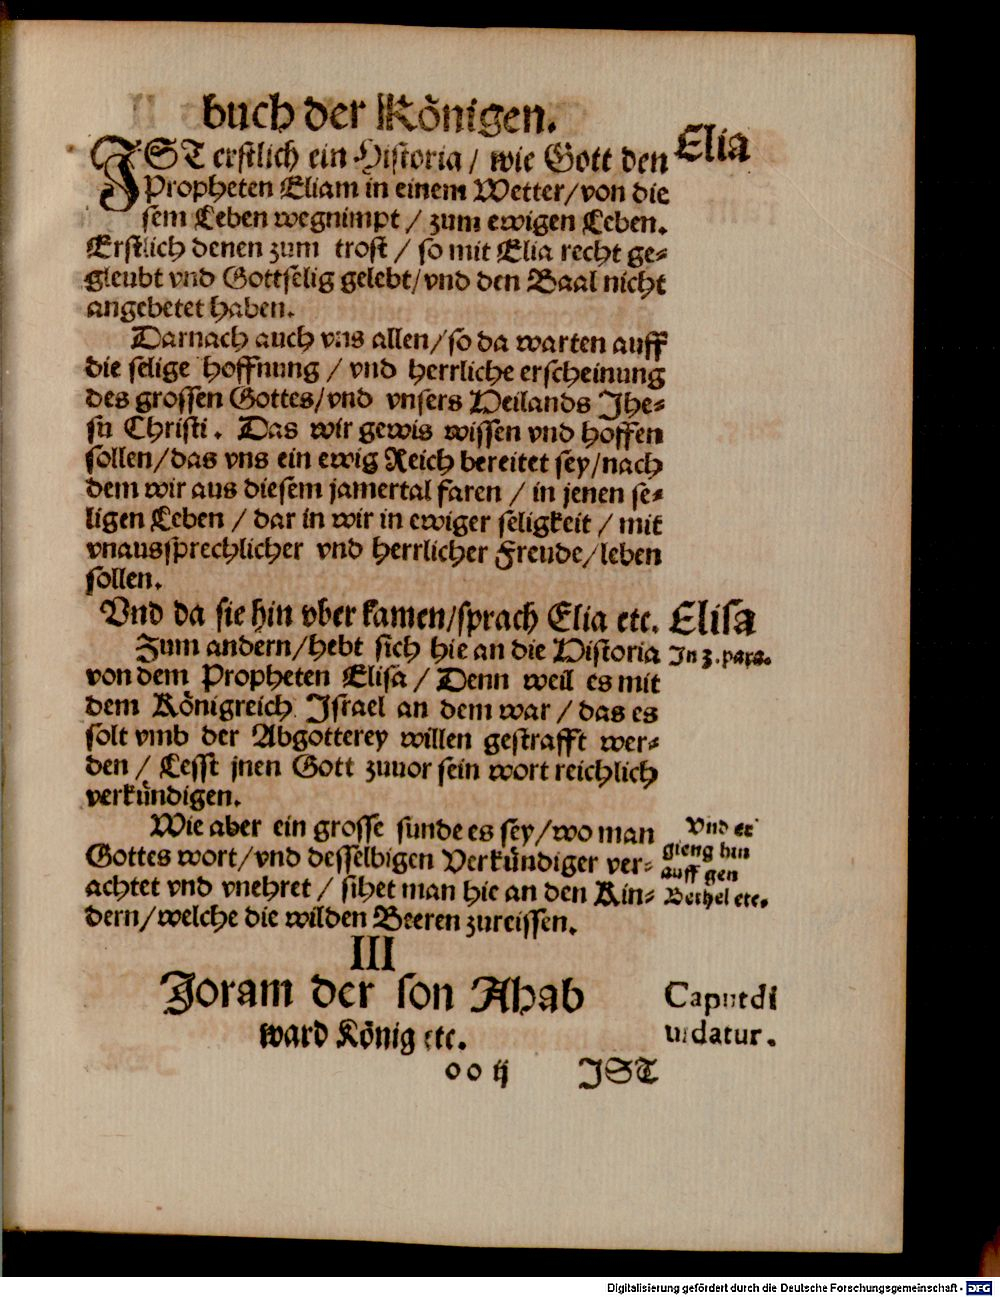 buch der Königen.
IST erstlich ein Historia / wie Gott den
Elia
Propheten Eliam in einem Wetter/von die
sem Leben wegnimpt / zum ewigen Leben.
Erstlich denen zum trost / so mit Elia recht ge-
gleubt vnd Gottselig gelebt/vnd den Baal nicht
angebetet haben.
Darnach auch vns allen/so da warten auff
die selige hoffnung / vnd herrliche erscheinung
des grossen Gottes/vnd vnsers Heilands Jhe-
su Christi. Das wir gewis wissen vnd hoffen
sollen/das vns ein ewig Reich bereitet sey/nach
dem wir aus diesem jamertal faren / in jenen se-
ligen Leben / dar in wir in ewiger seligkeit / mit
vnaussprechlicher vnd herrlicher Freude/leben
sollen.
Vnd da sie hin vber kamen/sprach Elia etc.
Elisa
Zum andern/hebt sich hie an die Historia
In 3. para.
von dem Propheten Elisa / Denn weil es mit
dem Königreich Israel an dem war / das es
solt vmb der Abgotterey willen gestrafft wer-
den / Lesst jnen Gott zuuor sein wort reichlich
verkündigen.
Wie aber ein grosse sunde es sey/wo man
Gottes wort/vnd desselbigen Verkündiger ver-
achtet vnd vnehret / sihet man hie an den Kin-
dern/welche die wilden Beeren zureissen.
Vnd er
gieng hin
auff gen
Bethel etc.
III
Joram der son Ahab
ward König etc.
Caput di
uidatur.
oo ij
IST
Digitalisierung gefördert durch die Deutsche Forschungsgemeinschaft - DFG